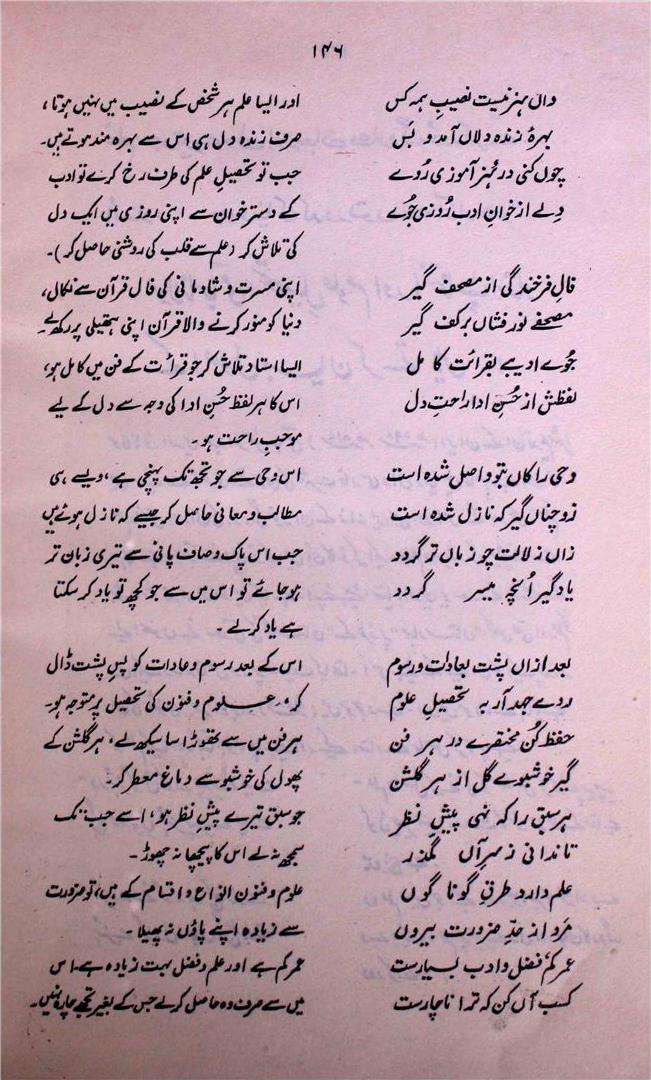 ۱۴۶
واں ہنر نیست نصیبِ ہمہ کس
بہرۂ زندہ دلاں آمد و بس
چوں کنی در ہُنر آموزی رُوے
دِلے از خوانِ ادب رُوزی جُوے
فالِ فرخندگی از مصحف گیر
مصحفے نور فشاں برکف گیر
جُوے ادیبے بقرائت کامل
لفظش از حُسنِ ادا راحتِ دل
وحی را کاں بتو واصل شدہ است
زو چناں گیر کہ نازل شدہ است
زاں زلالت چو زباں تر گردد
یاد گیر اُنچہ میسر گردد
بعد ازاں پشت بعادات و رسوم
روے جہد آر بہ تحصیلِ علوم
حفظ کُن مختصرے در ہر فن
گیر خوشبوے گل از ہر گلشن
ہر سبق را کہ نہی پیشِ نظر
تا ندانی ز سرِ آں مگذر
علم دارد طرقِ گونا گوں
مَرو از حدِّ ضرورت بیروں
عمر کم، فضل و ادب بسیارست
کسب آں کن کہ ترا ناچارست
اور ایسا علم ہر شخص کے نصیب میں نہیں ہوتا،
صرف زندہ دل ہی اس سے بہرہ مند ہوتے ہیں۔
جب تو تحصیلِ علم کی طرف رخ کرے تو ادب
کے دسترخوان سے اپنی روزی میں ایک دل
کی تلاش کر (علم سے قلب کی روشنی حاصل کر)۔
اپنی مسرت و شادمانی کی فال قرآن سے نکال،
دنیا کو منور کرنے والا قرآن اپنی ہتھیلی پر رکھ لے۔
ایسا استاد تلاش کر جو قرائت کے فن میں کامل ہو،
اس کا ہر لفظ حُسنِ ادا کی وجہ سے دل کے لیے
موجبِ راحت ہو۔
اس وحی سے جو تجھ تک پہنچی ہے، ویسے ہی
مطالب و معانی حاصل کر جیسے کہ نازل ہوئے ہیں
جب اس پاک و صاف پانی سے تیری زبان تر
ہو جائے تو اس میں سے جو کچھ تو یاد کر سکتا
ہے یاد کر لے۔
اس کے بعد رسوم و عادات کو پسِ پشت ڈال
کر، علوم و فنون کی تحصیل پر متوجہ ہو۔
ہر فن میں سے تھوڑا سا سیکھ لے، ہر گلشن کے
پھول کی خوشبو سے دماغ معطر کر۔
جو سبق تیرے پیشِ نظر ہو، اسے جب تک
سمجھ نہ لے اس کا پیچھا نہ چھوڑ۔
علوم و فنون انواع و اقسام کے ہیں، تو ضرورت
سے زیادہ اپنے پاؤں نہ پھیلا۔
عمر کم ہے اور علم و فضل بہت زیادہ ہے۔ اس
میں سے صرف وہ حاصل کر لے جس کے بغیر تجھے چارہ نہیں۔